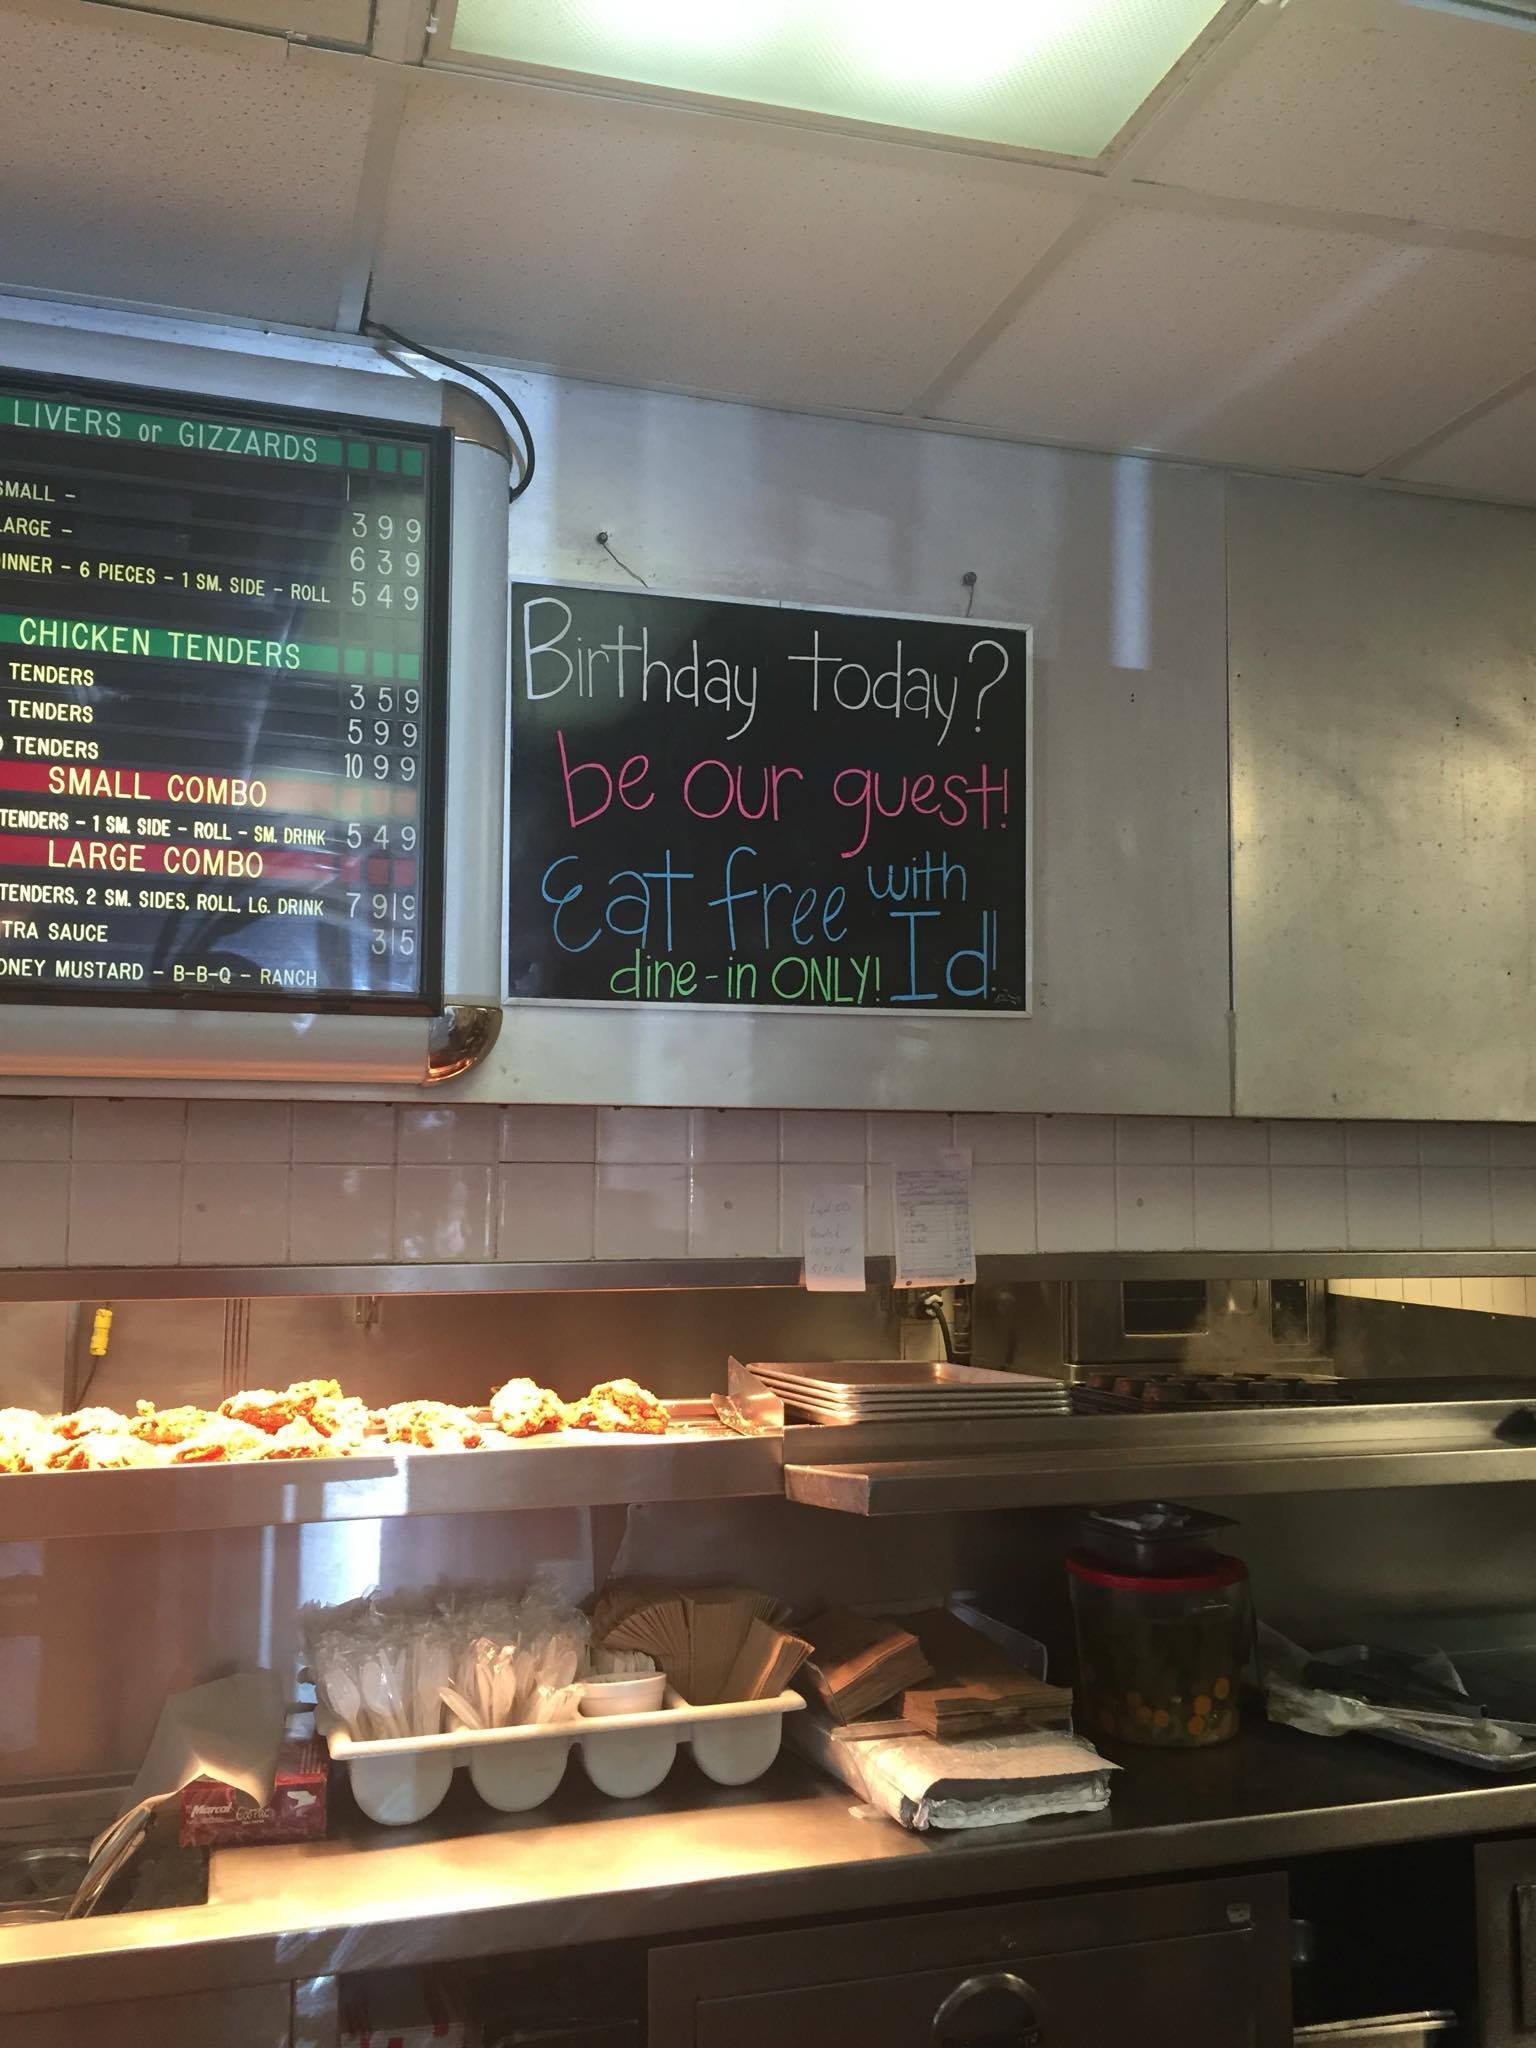 LIVERS or GIZZARDS
SMALL -
LARGE - 3 9 9
6 3 9
DINNER - 6 PIECES - 1 SM. SIDE - ROLL 5 4 9
CHICKEN TENDERS
TENDERS 3 5 9
TENDERS 5 9 9
TENDERS 10 9 9
SMALL COMBO
TENDERS - 1 SM. SIDE - ROLL - SM. DRINK 5 4 9
LARGE COMBO
TENDERS, 2 SM. SIDES, ROLL, LG. DRINK 7 9 9
TRA SAUCE 3 5
ONEY MUSTARD - B-B-Q - RANCH
Birthday today?
be our guest!
Eat free with
dine-in ONLY! Id!
Marcal